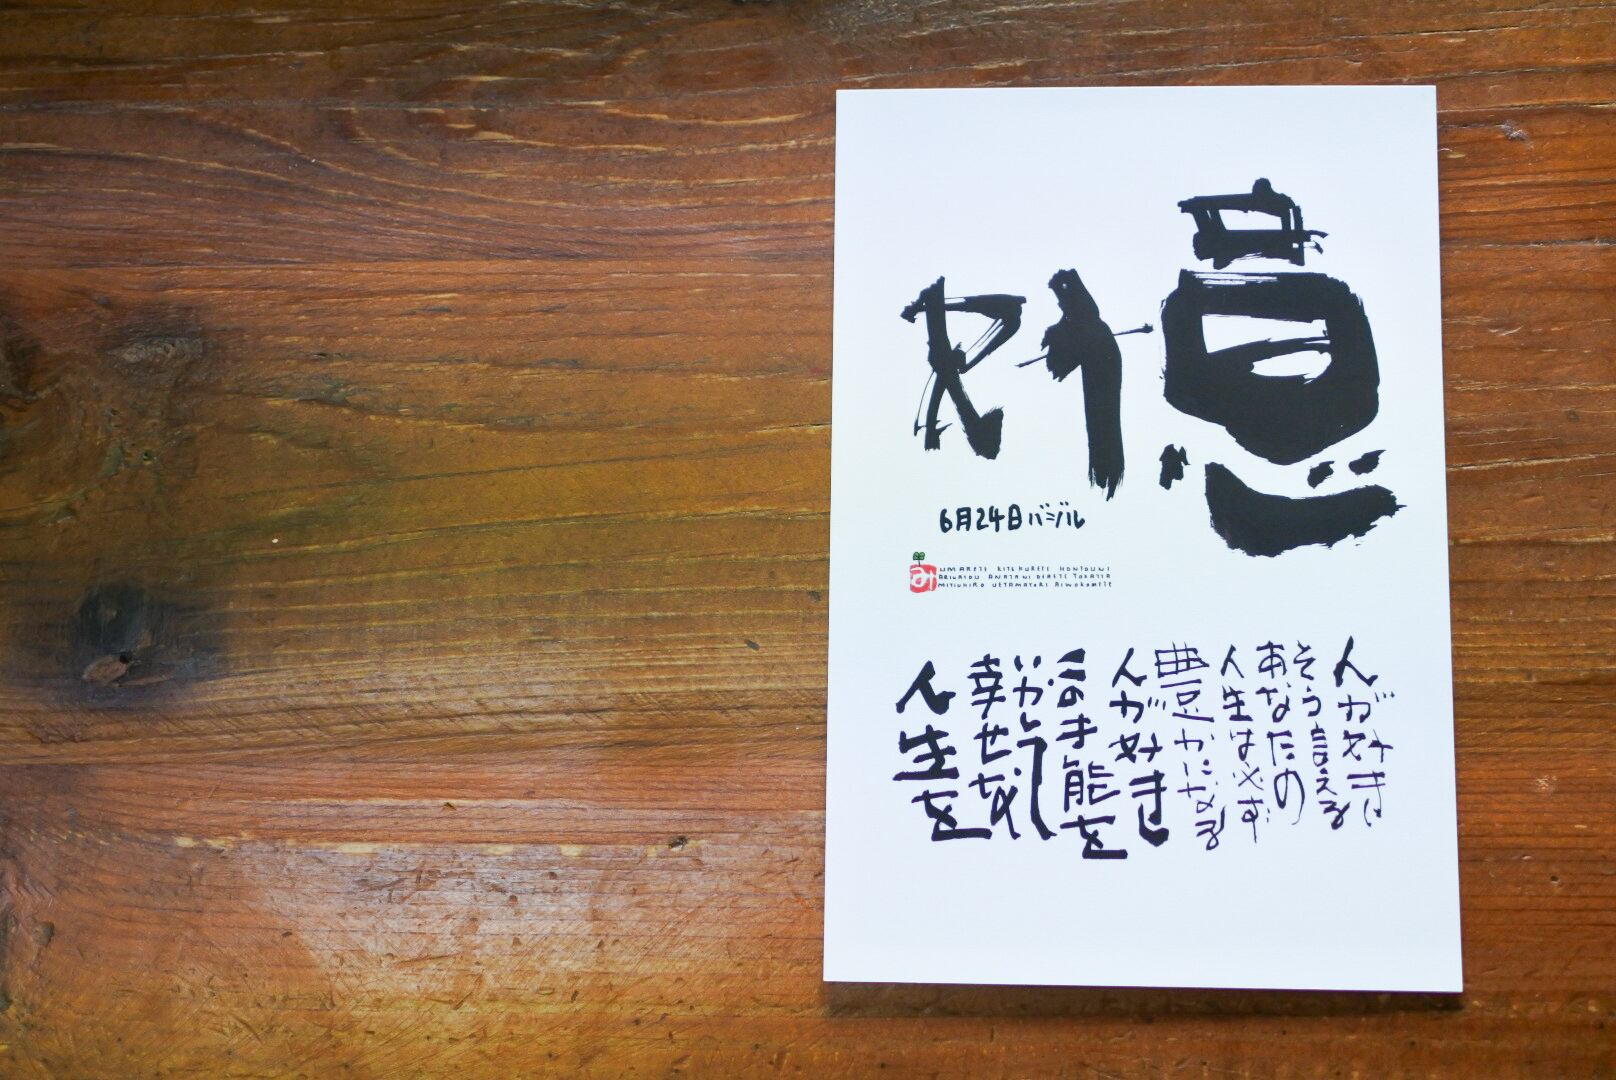 好意
6月24日バジル
み
UMARETE KITEKURETE HONTOUNI
ARIGATOU ANATANI DEAETE YOKATTA
MITSUHIRO UETAMAYORI AIWOKOMETE
人が好き
そう言える
あなたの
人生は必ず
豊かになる
人が好き
この才能を
いかして
幸せな
人生を